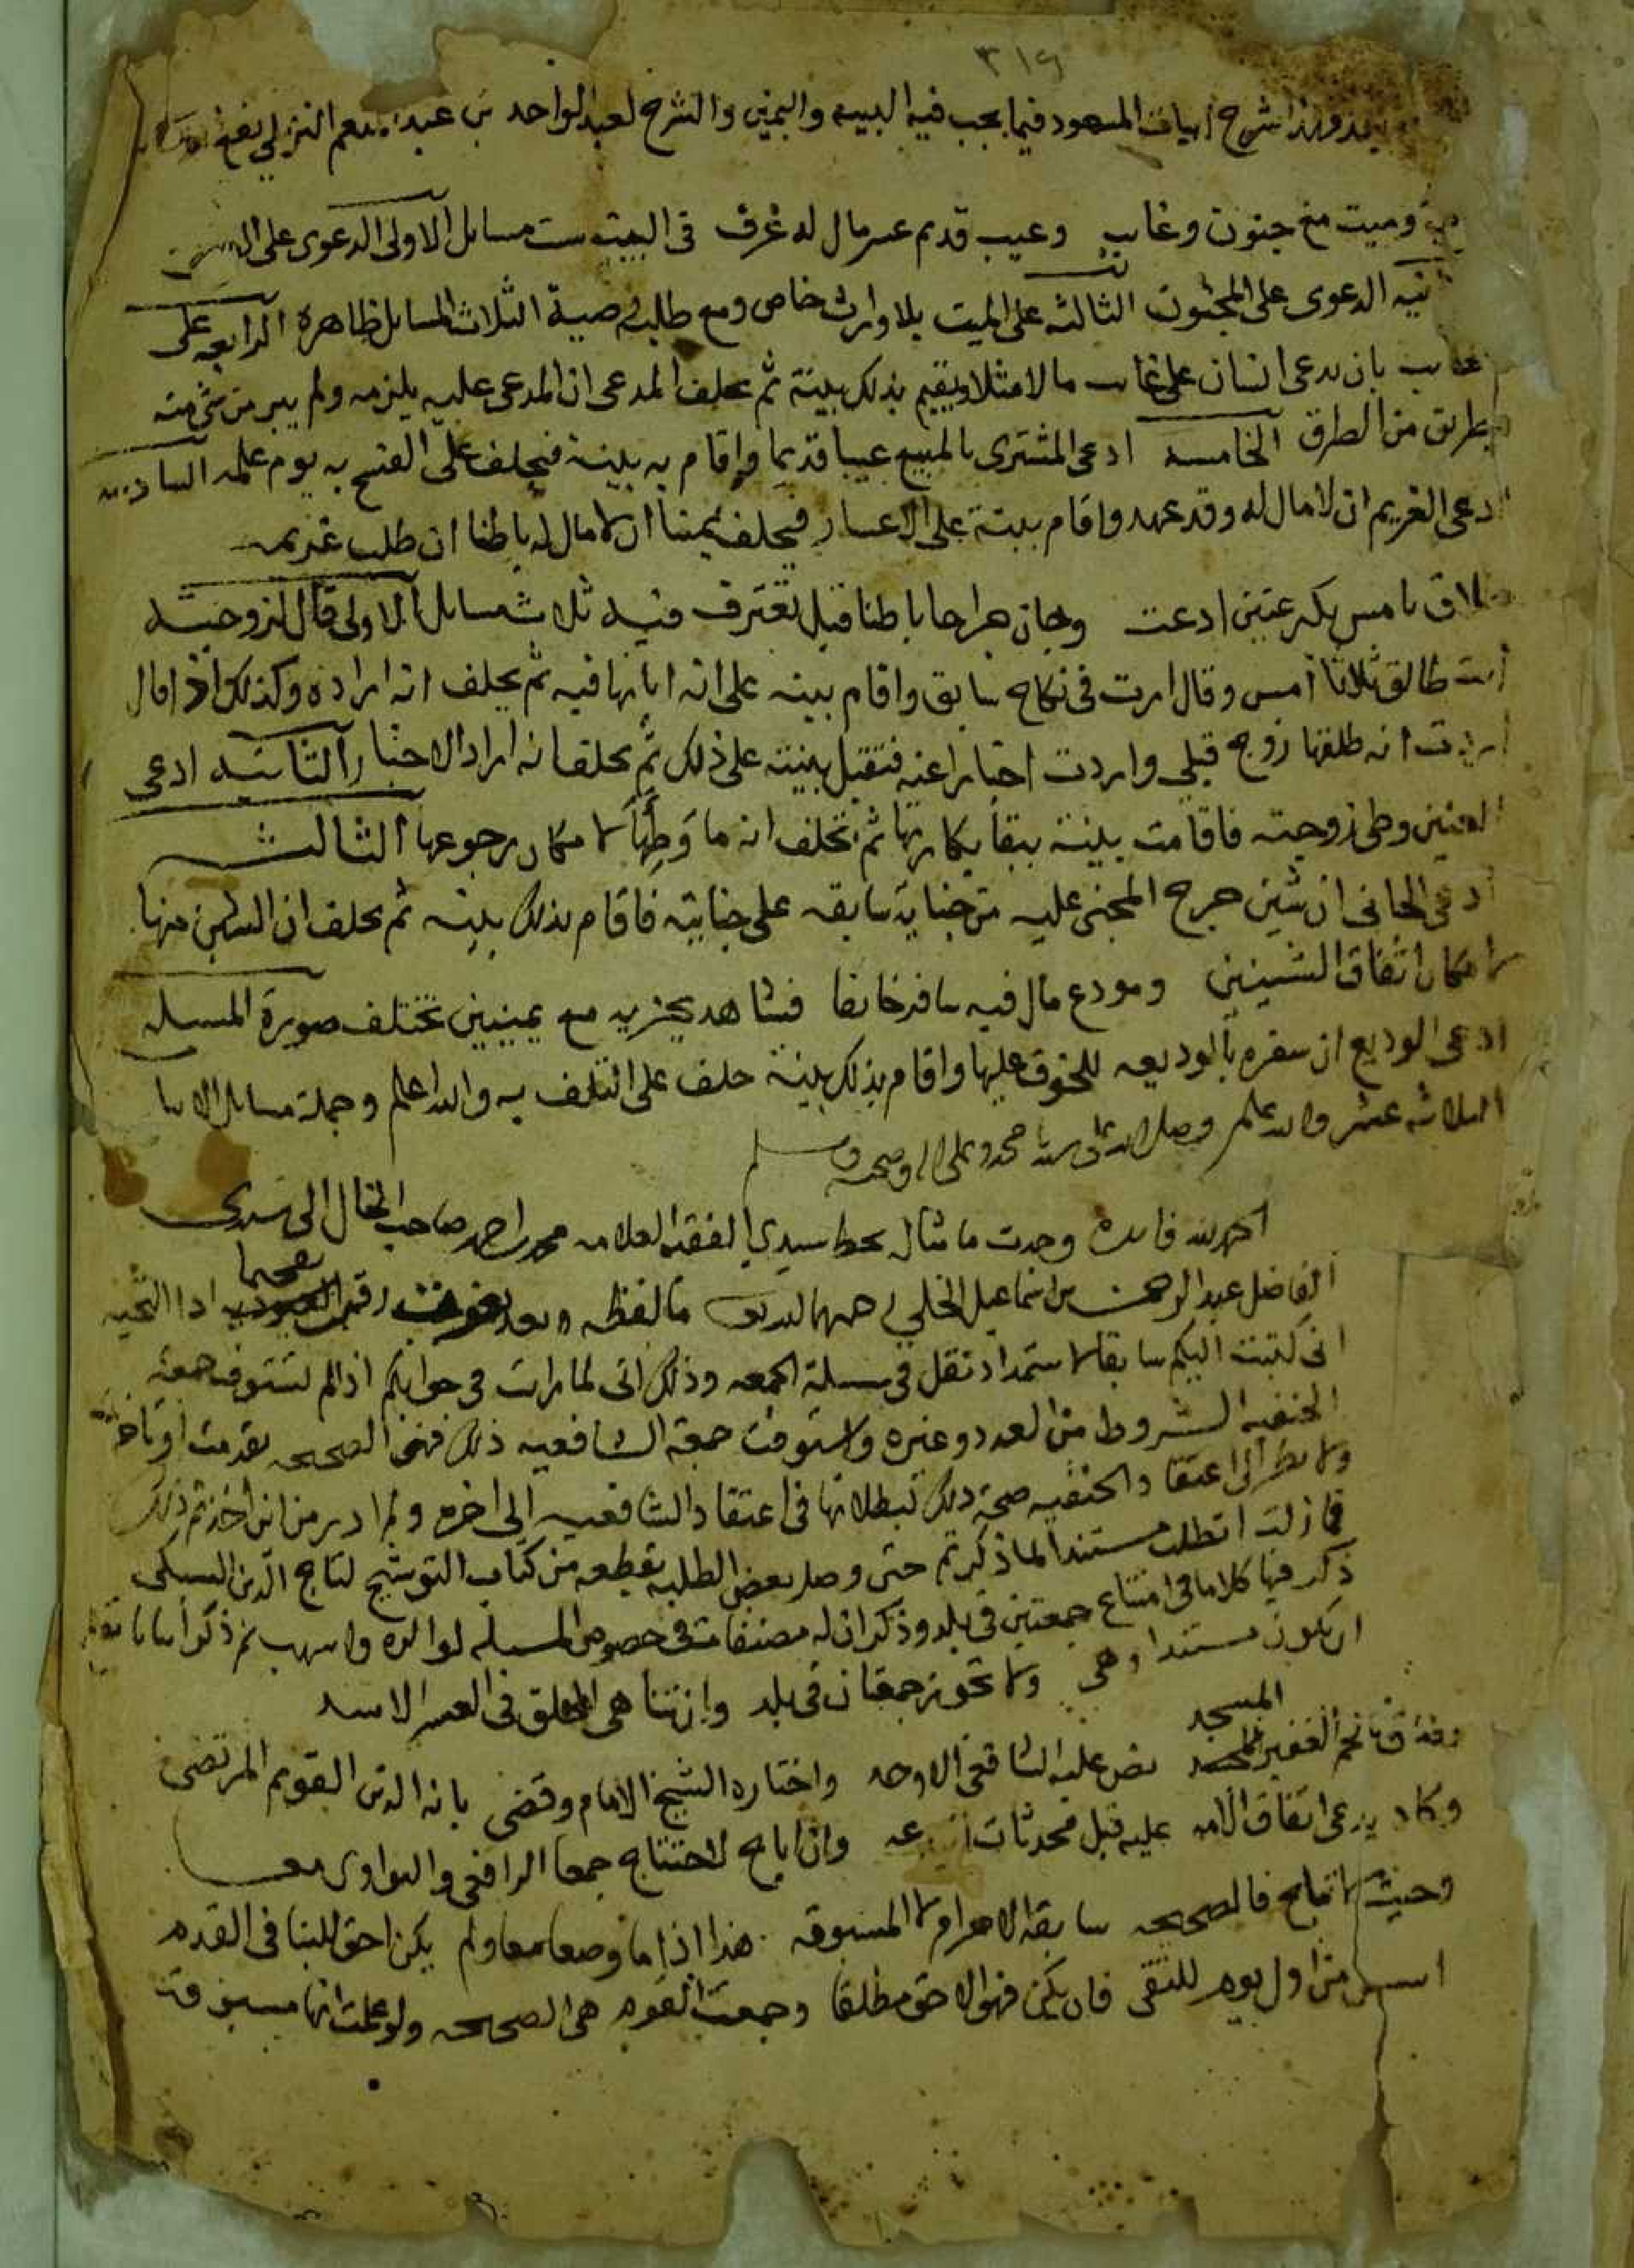 ٣١٩
وبعد فهذا شرح ابيات المسعود فيما يجب فيه البينه واليمين والشرح لعبد الواحد بن عبد المنعم النزيلي نفع
وميت مع جنون وغايب وعيب قدم عسر مال له عرف في البيت ست مسايل الاولى الدعوى على
الثانيه الدعوى على المجنون الثالثه على الميت بلا وارث خاص ومع طالب وصية الثلاث المسايل ظاهرة الرابعه على
غايب بان يدعى انسان على غايب مالا مثلا ويقيم بذلك بينة ثم يحلف المدعى ان المدعى عليه يلزمه ولم يبر من شي منه
بطريق من الطرق الخامسه ادعى المشترى بالمبيع عيبا قديما واقام به بينة فيحلف على الفسخ به يوم علمه السادسه
ادعى الغريم ان لا مال له وقد عهد واقام بينة على الاعسار فيحلف يمينا ان لا مال له باطنا ان طلب غريمه
طلاق بامس بكر عنين ادعت وجان جراحا باطنا قبل تعترف فيه ثلاث مسايل الاولى قال لزوجته
انت طالق ثلاثا امس وقال اردت في نكاح سابق واقام بينه على انه ابانها فيه ثم يحلف انه اراده وكذلك اذا قال
اردت انه طلقها زوج قبلي واردت اخبارا عنه فتقبل بينته على ذلك ثم يحلف انه اراد الاخبار الثانيه ادعى
العنين وطي زوجته فاقامت بينة ببقا بكارتها ثم تحلف انه ما وطئها لامكان رجوعها الثالثه
ادعى الجاني ان شين جرح المجنى عليه من جناية سابقه على جنايته فاقام بذلك بينه ثم يحلف ان الشين منها
لامكان اتفاق الشينين ومودع مال فيه سافر خائفا فشاهد يجزيه مع يمينين تختلف صورة المسله
ادعى الوديع ان سفره بالوديعه للخوف عليها واقام بذلك بينة حلف على التلف به والله اعلم وجملة مسايل الابيا
الثلاثه عشر والله اعلم وصلى الله على سيدنا محمد وعلى اله وصحبه وسلم
الحمد لله فايدة وجدت ما مثاله بخط سيدي الفقيه العلامه محمد بن احمد صاحب الخال الى سيدي
الفاضل عبد الرحمن بن اسماعيل الخلي رحمهما الله تعالى ما لفظه وبعد رقمها بعد ادا التحيه
اني كتبت اليكم سابقا لاستمداد نقل في مسلة الجمعه وذلك اني لما رايت في جوابكم اذا لم تستوف جمعة
الحنفيه الشروط من العدد وغيره واستوفت جمعة الشافعيه ذلك فهي الصحيحه تقدمت او تاخرت
ولا نظر الى اعتقاد الحنفيه صحة ذلك لبطلانها في اعتقاد الشافعيه الى اخره ولم ادر من اين اخذتم ذلك
فما زلت اتطلب مستندا لما ذكرتم حتى وصل بعض الطلبه بقطعه من كتاب التوشيح لتاج الدين السبكى
ذكر فيها كلاما في امتناع جمعتين في بلد وذكر ان له مصنفات في خصوص المسله لوالده واسهب ثم ذكر ابياتا
ان يكون مستندا وهي ولا تجوز جمعتان في بلد وان تناهى الخلق في العسر الاسد
وضاق بالجم الغفير المسجد نص عليه الشافعي الاوحد واختاره الشيخ الامام وقضى بانه الدين القويم المرتضى
وكاد يدعى اتفاق الامه عليه قبل محدثات وان ابيح لاحتياج جمعا الرافعي والنواوي معا
وحيث لا تباح فالصحيحه سابقة الاحرام لا المسبوقه هذا اذا ما وضعا معا ولم يكن احق للبنا في القدم
اسس من اول يوم للتقى فان يكن فهو الاحق مطلقا وجمعة القوم هي الصحيحه ولو علمت انها مسبوقه